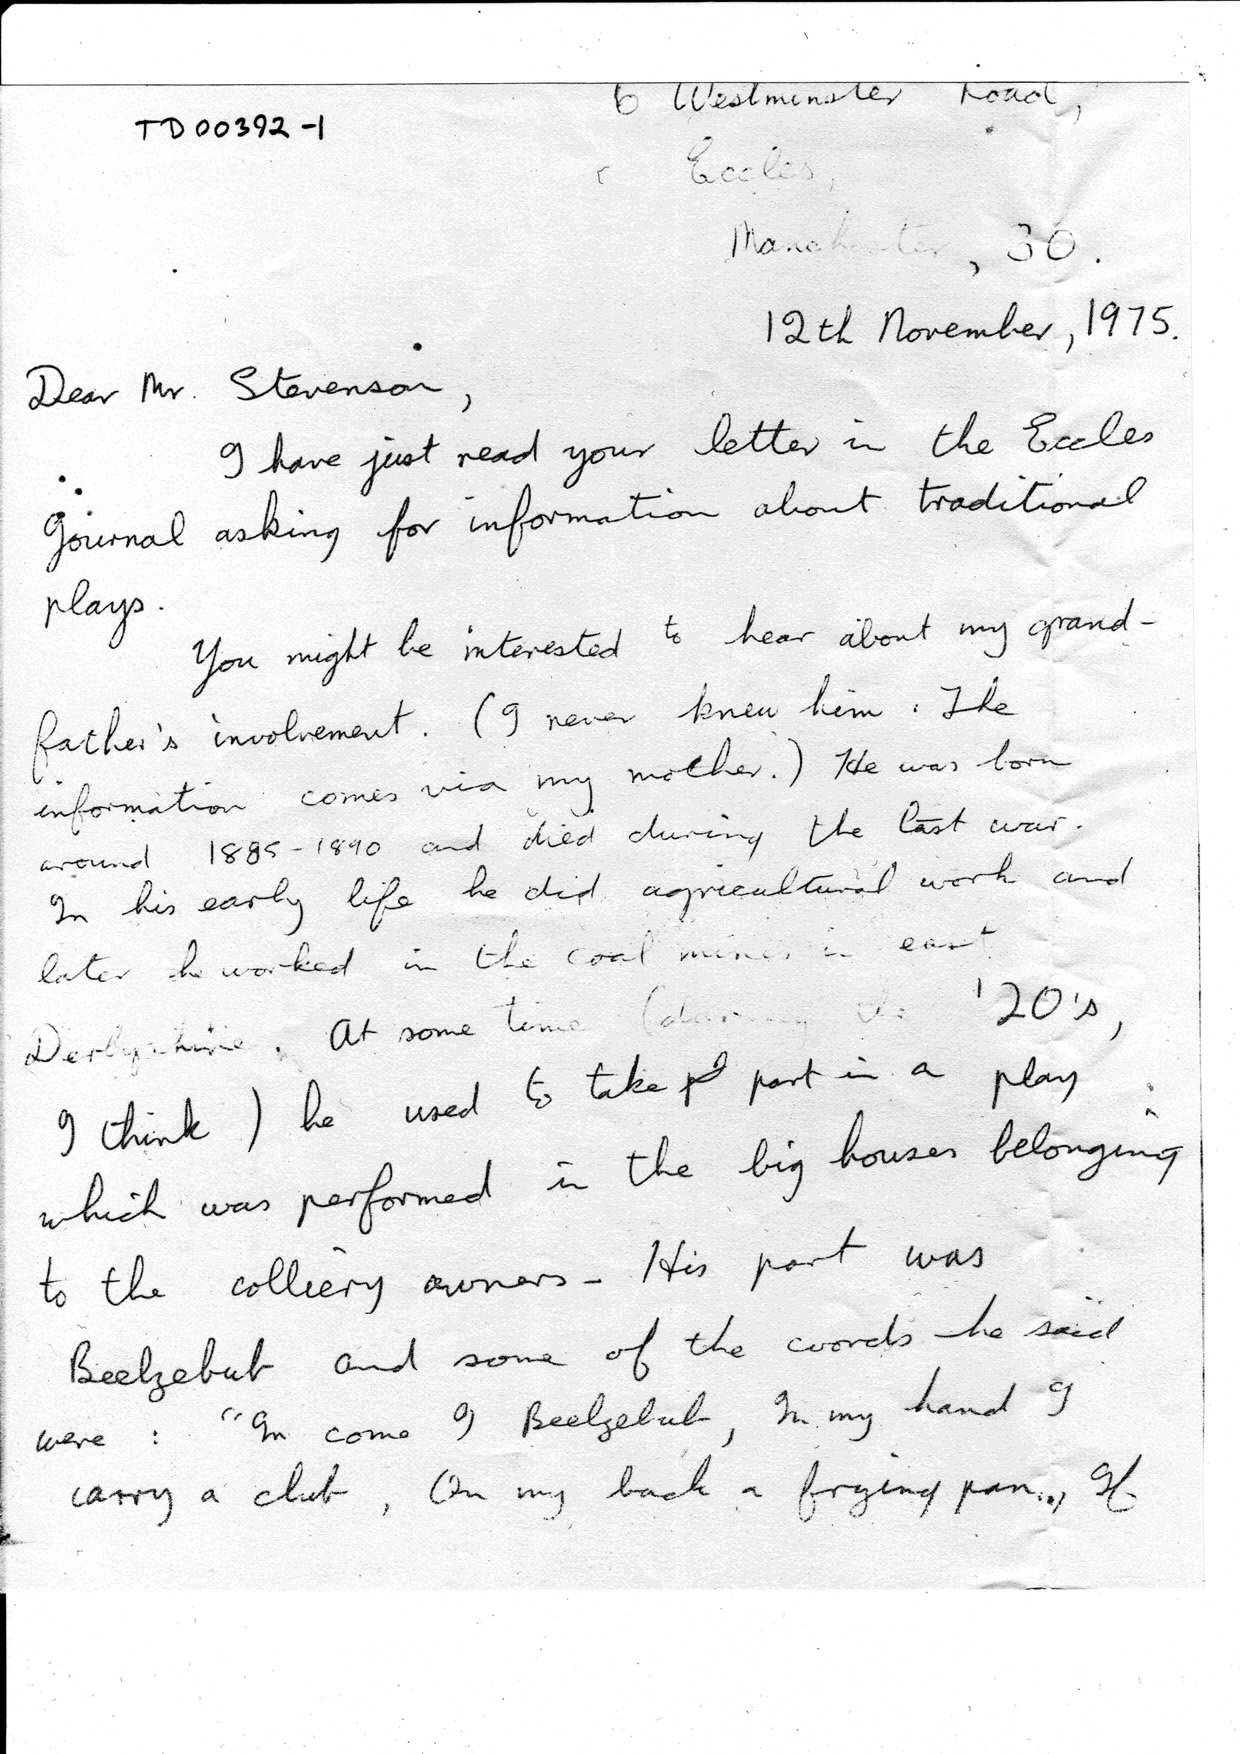 6 Westminster Road,
TD00392-1
Eccles,
Manchester, 30.
12th November, 1975.
Dear Mr. Stevenson,
I have just read your letter in the Eccles
Journal asking for information about traditional
plays.
You might be interested to hear about my grand-
father's involvement. (I never knew him. The
information comes via my mother.) He was born
around 1885-1890 and died during the last war.
In his early life he did agricultural work and
later he worked in the coal mines in east
Derbyshire. At some time (during the '20's,
I think) he used to take part in a play
which was performed in the big houses belonging
to the colliery owners - His part was
Beelzebub and some of the words he said
were : "In come I Beelzebub, In my hand I
carry a club, On my back a frying pan.., If